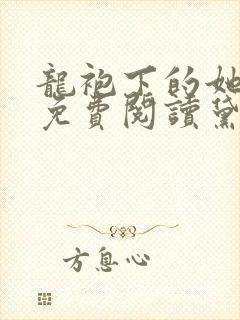 龍袍下的她
免費閱讀黛
方息心